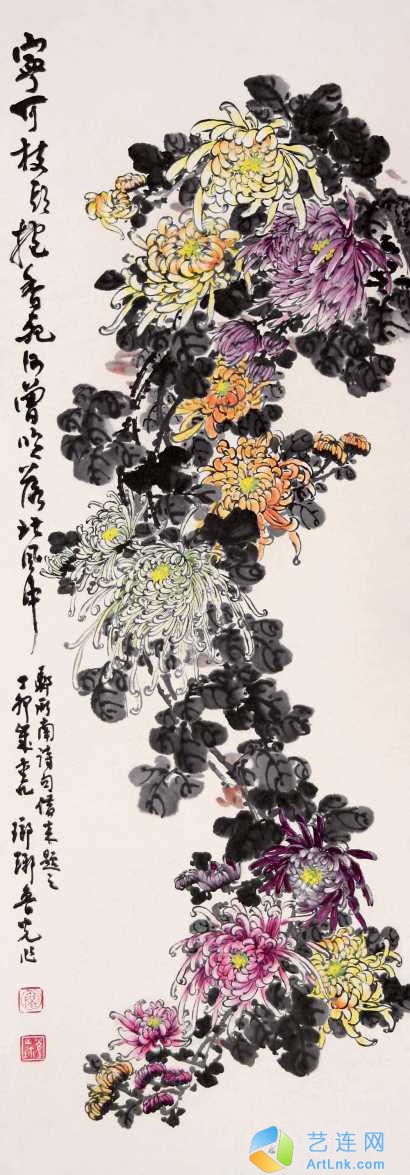 寧可枝頭抱香死何曾吹落北風中
鄭所南詩句借来題之
丁卯歲重九瑯琊魯光作
艺连网
ArtLnk.com